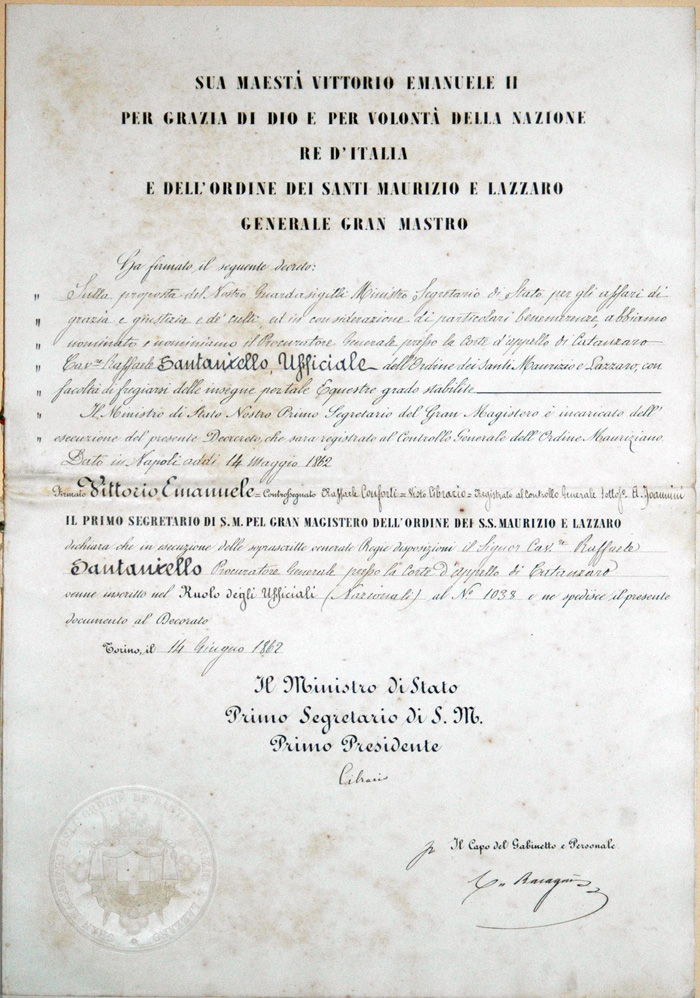 SUA MAESTÀ VITTORIO EMANUELE II
PER GRAZIA DI DIO E PER VOLONTÀ DELLA NAZIONE
RE D'ITALIA
E DELL'ORDINE DEI SANTI MAURIZIO E LAZZARO
GENERALE GRAN MASTRO
Ha firmato il seguente decreto:
" Sulla proposta del Nostro Guardasigilli Ministro Segretario di Stato per gli affari di
" grazia e giustizia e de' culti ed in considerazione di particolari benemerenze, abbiamo
" nominato e nominiamo il Procuratore Generale presso la Corte d'appello di Catanzaro
" Cav.re Raffaele Santanxello, Uffiziale dell'Ordine dei Santi Maurizio e Lazzaro, con
" facoltà di fregiarsi delle insegne per tale Equestre grado stabilite
" Il Ministro di Stato Nostro Primo Segretario del Gran Magistero è incaricato dell'
" esecuzione del presente Decreto, che sarà registrato al Controllo Generale dell'Ordine Mauriziano.
" Dato in Napoli addì 14 Maggio 1862
Firmato Vittorio Emanuele = Controsegnato Raffaele Conforti = Visto Cibrario = Registrato al Controllo Generale sottos.o A. Joannini
IL PRIMO SEGRETARIO DI S. M. PEL GRAN MAGISTERO DELL'ORDINE DEI S.S. MAURIZIO E LAZZARO
dichiara che in esecuzione delle soprascritte generate Regie disposizioni il Signor Cav.re Raffaele
Santanxello Procuratore Generale presso la Corte d'appello di Catanzaro
venne inscritto nel Ruolo degli Uffiziali (Nazionali) al N° 1038 e ne spedisce il presente
documento al Decorato
Torino, il 14 Giugno 1862
Il Ministro di Stato
Primo Segretario di S. M.
Primo Presidente
Cibrario
Il Capo del Gabinetto e Personale